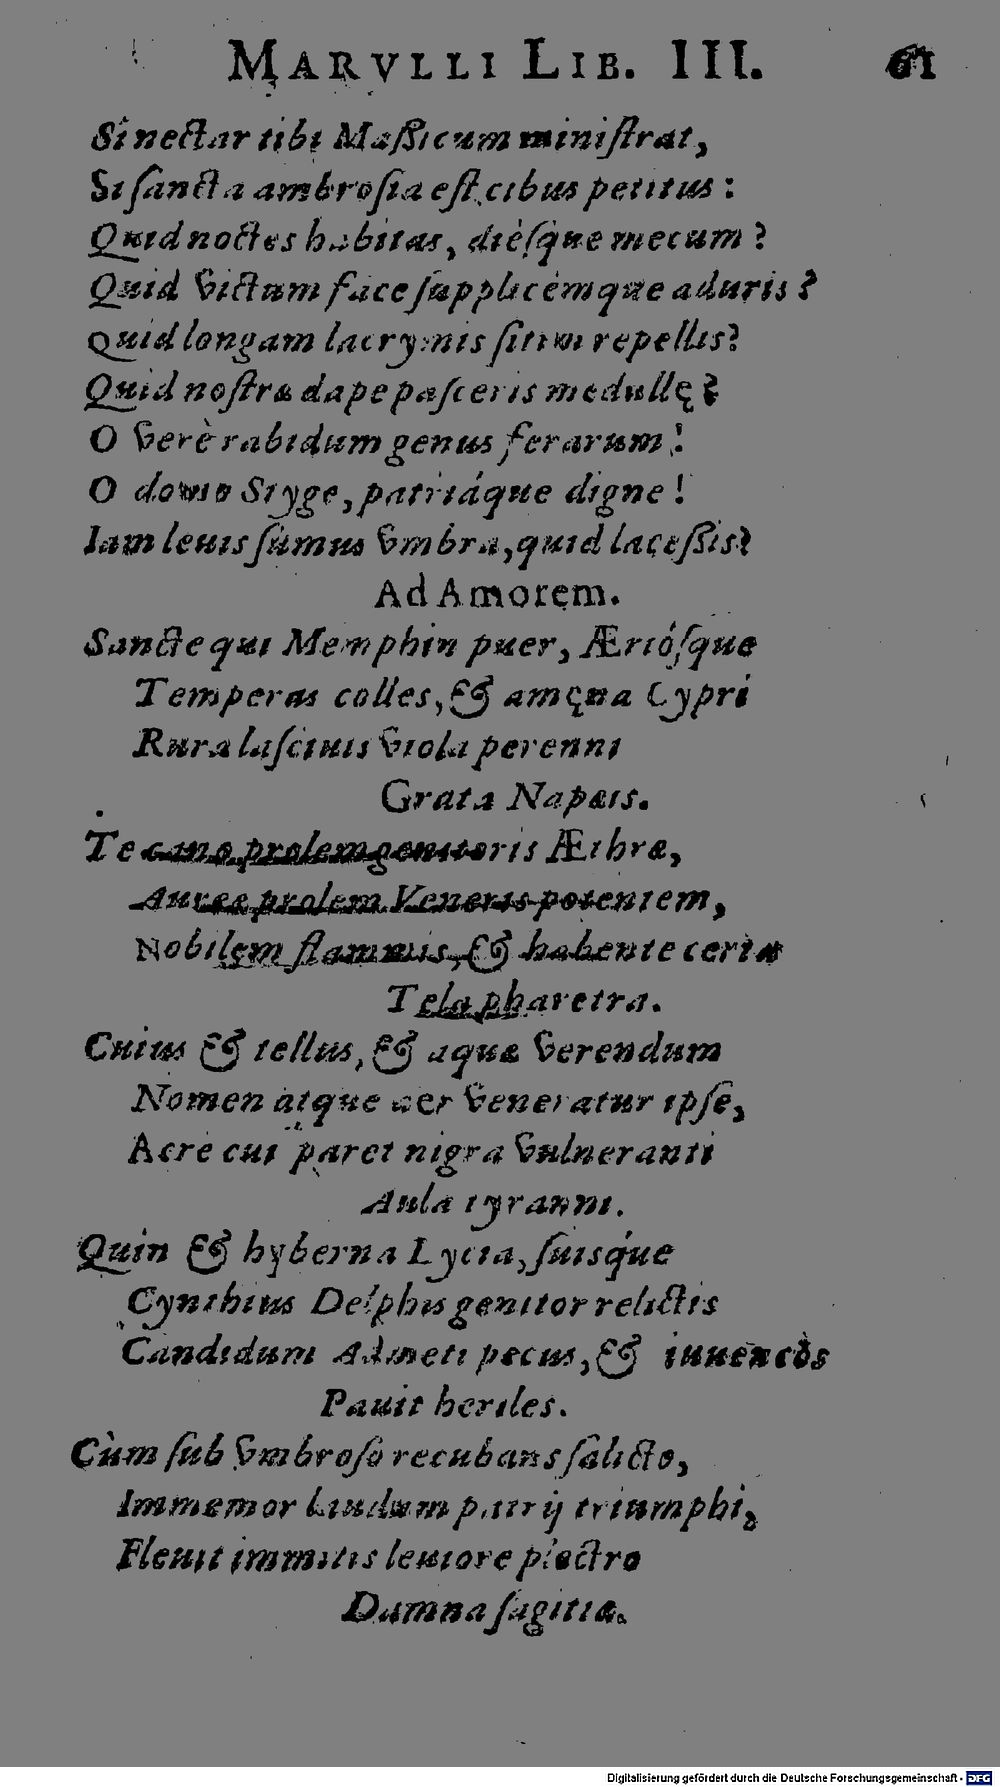 MARVLLI LIB. III. 61
Si nectar tibi Maſsicum miniſtrat,
Si ſancta ambroſia eſt cibus petitus:
Quid noctes habitas, dièſque mecum?
Quid victum face ſupplicémque aduris?
Quid longam lacrymis ſitim repellis?
Quid noſtræ dape paſceris medullę?
O verè rabidum genus ferarum!
O domo Styge, patriáque digne!
Iam leuis ſumus vmbra, quid laceſsis?
Ad Amorem.
Sancte qui Memphin puer, Ærióſque
Temperas colles, & amęna Cypri
Rura laſciuis viola perenni
Grata Napæis.
Te cano prolem genitoris Æthræ,
Aureæ prolem Veneris potentem,
Nobilem flammis, & habente certæ
Tela pharetra.
Cuius & tellus, & aquæ verendum
Nomen atque aer veneratur ipſe,
Acre cui paret nigra vulneranti
Aula tyranni.
Quin & hyberna Lycia, ſuisq́ue
Cynthius Delphis genitor relictis
Candidum Admeti pecus, & iuuencos
Pauit heriles.
Cùm ſub vmbroſo recubans ſalicto,
Immemor laudum patrij triumphi,
Fleuit immitis leuiore plectro
Damna ſagittæ.
Digitalisierung gefördert durch die Deutsche Forschungsgemeinschaft - DFG